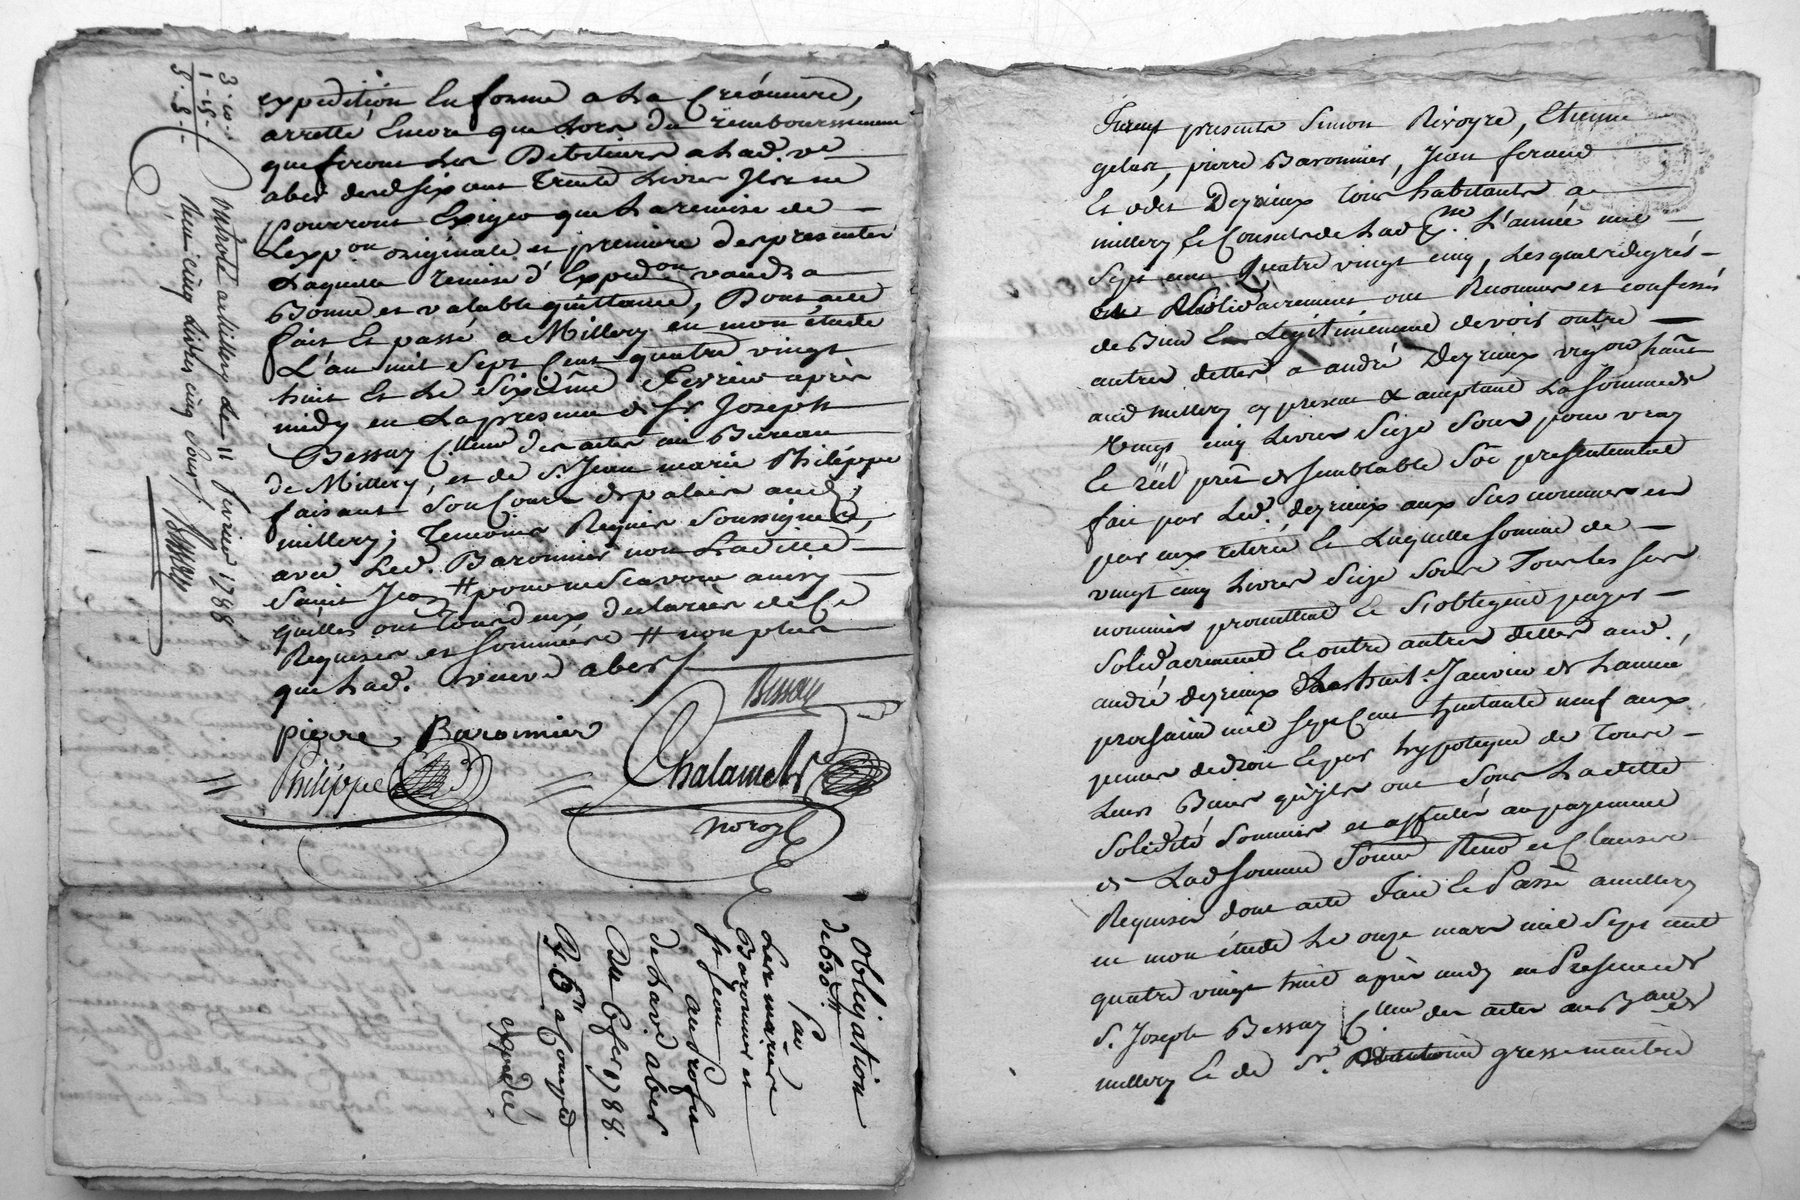 expedition En forme a La Créanciere,
arretté Encore que Lors du remboursement
que feront Les Debiteurs a Lad. ve
aber desd six cent Trente Livres Ils ne
pourront Exiger que La remise de
L'expon originale et premiere des presentes
Laquelle remise d'Expedon vaudra
Bonne et valable quittance, Dont acte
fait Et passé a Millery en mon étude
L'an mil Sept Cent quatre vingt
huit Et Le Sixième Fevrier après
midy en La presence de Sr Joseph
Bessay Cteur des actes au Bureau
de Millery, et de Sr. Jean marie Philippe
faisant Son Cours de palais aud.
millery; Temoins Requis Soussignés,
avec Led. Baronnier non Laditte
Saint Jean # pour ne Scavoir ainsy
qu'elles ont Tous deux declarées de Ce
Requises et Sommées # non plus
que Lad. veuve aber /
Bessay
pierre Baronnier
Philippe
Chalamel
noroy
3. 10.
1. 15.
5. 5.
Controlé a millery Le 11 fevrier 1788
Reçu cinq Livres cinq Sous /. Bessay
Obligation
de 630 #
par
Les mariés
Baronnier et
St Jean
au profit
de La ve aber
Du 6 fer 1788.
expedié
Furent presents Simon Rivoyre, Etienne
gelas, pierre Baronnier, Jean ferand
Et odet Deyrieux tous habitants a
millery Et Consuls de Lad. L'année mil
Sept cent Quatre vingt cinq, Lesquels de gré
et Solidairement ont Reconnus et confessés
de Bien Et Legitimement devoir outre
autres dettes a andré Deyrieux vigon hant
aud millery cy present & acceptant La Somme de
vingt cinq Livres Seize Sous pour vray
Et réel prêt de Semblable Soe presentement
fait par Led. deyrieux aux Sus nommés et
par eux retiré Et Laquelle Somme de
vingt cinq Livres Seize Sous Tous les Sus
nommés promettent Et S'obligent payer
Solidairement Et outre autres dettes aud.
andré deyrieux Le huit Janvier de L'année
prochaine mil Sept Cent huitante neuf aux
peines de droit Et par hypoteque de Tous
Leurs Biens qu'ils ont Sous Laditte
Solidité Soumis et affectés au payement
de Lad Somme Sous Renon et Clauses
Requises dont acte Fait Et Passé a millery
en mon étude Le onze mars mil Sept cent
quatre vingt huit après midy en Presence de
S. Joseph Bessay Cteur des actes au Bau de
millery Et de Sr. gresse maitre